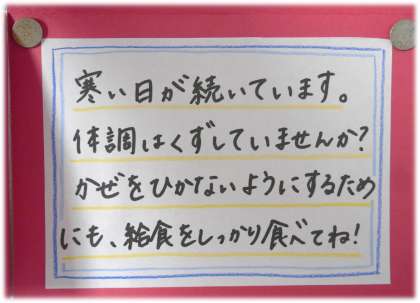 寒い日が続いています。
体調はくずしていませんか?
かぜをひかないようにするため
にも、給食をしっかり食べてね!